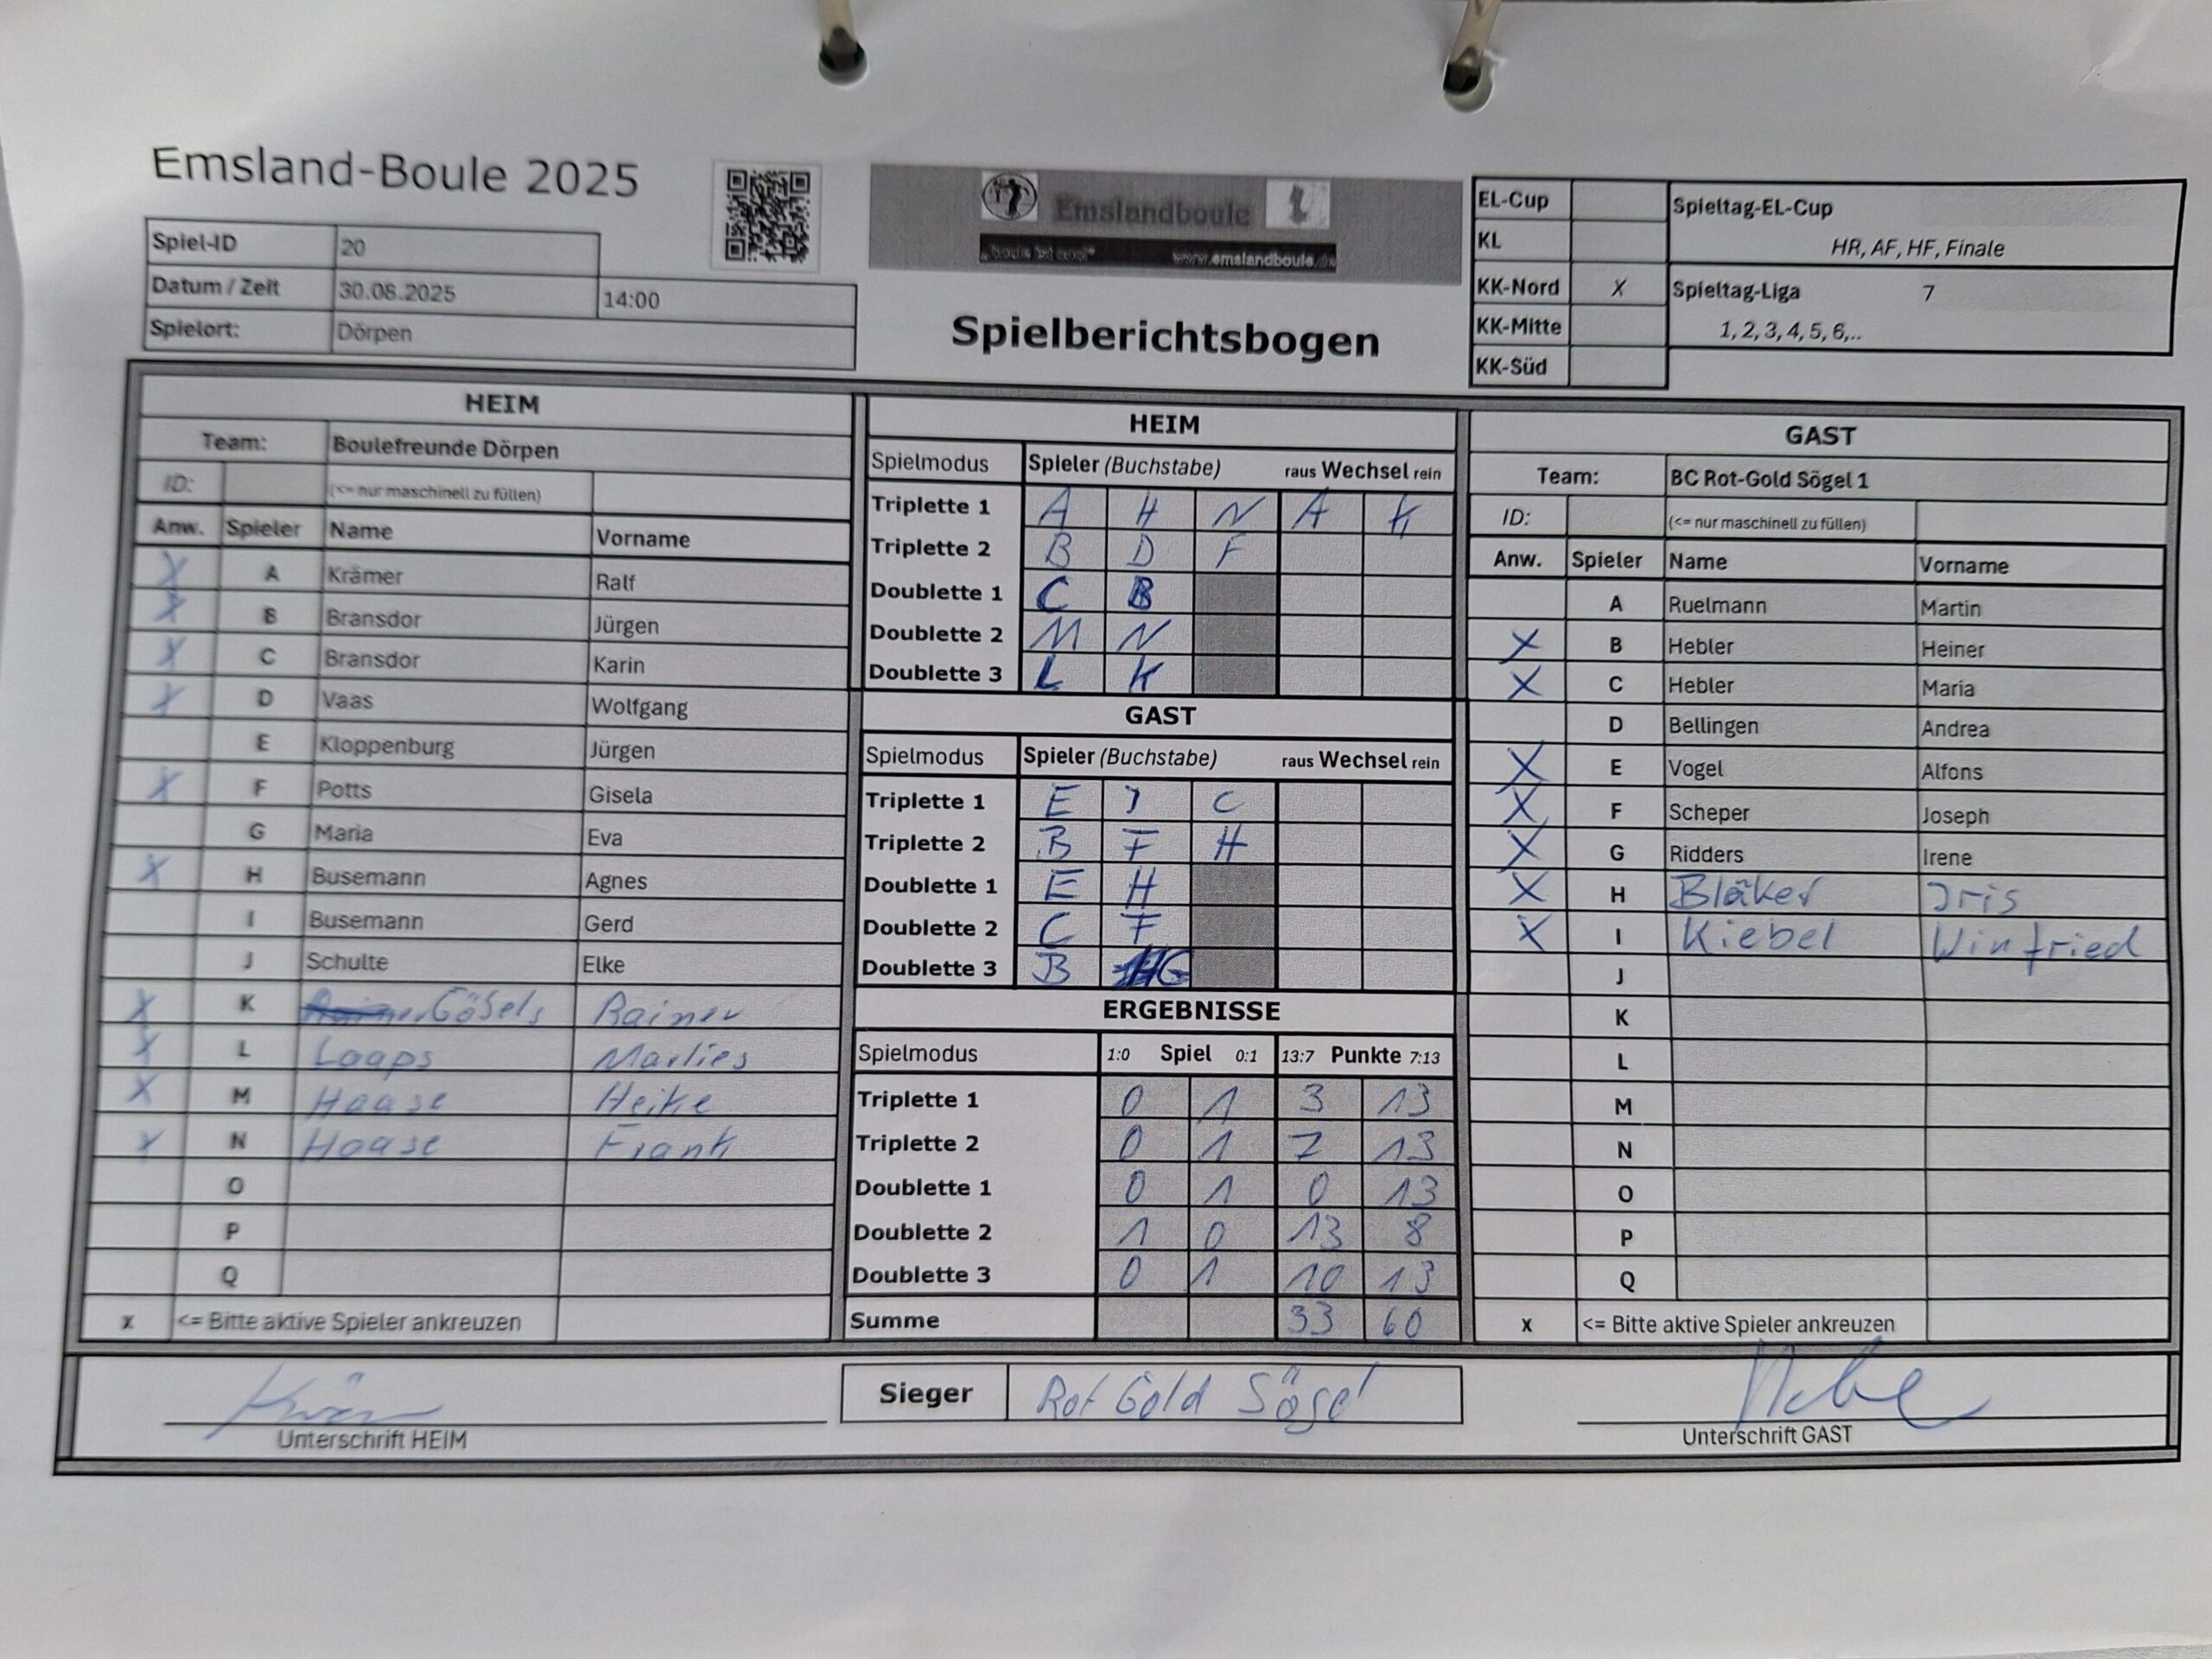 Emsland-Boule 2025
Spiel-ID 20
Datum / Zeit 30.08.2025 14:00
Spielort: Dörpen
Emslandboule
www.emslandboule.de
Spielberichtsbogen
EL-Cup Spieltag-EL-Cup
KL HR, AF, HF, Finale
KK-Nord X Spieltag-Liga 7
KK-Mitte 1, 2, 3, 4, 5, 6,..
KK-Süd
HEIM
Team: Boulefreunde Dörpen
ID: (<= nur maschinell zu füllen)
Anw. Spieler Name Vorname
X A Krämer Ralf
X B Bransdor Jürgen
X C Bransdor Karin
X D Vaas Wolfgang
E Kloppenburg Jürgen
X F Potts Gisela
G Maria Eva
X H Busemann Agnes
I Busemann Gerd
J Schulte Elke
X K Gösels Rainer
X L Laaps Marlies
X M Haase Heike
X N Haase Frank
O
P
Q
x <= Bitte aktive Spieler ankreuzen
Unterschrift HEIM
HEIM
Spielmodus Spieler (Buchstabe) raus Wechsel rein
Triplette 1 A H N A K
Triplette 2 B D F
Doublette 1 C B
Doublette 2 M N
Doublette 3 L K
GAST
Spielmodus Spieler (Buchstabe) raus Wechsel rein
Triplette 1 E I C
Triplette 2 B F H
Doublette 1 E H
Doublette 2 C F
Doublette 3 B G
ERGEBNISSE
Spielmodus 1:0 Spiel 0:1 13:7 Punkte 7:13
Triplette 1 0 1 3 13
Triplette 2 0 1 7 13
Doublette 1 0 1 0 13
Doublette 2 1 0 13 8
Doublette 3 0 1 10 13
Summe 33 60
Sieger Rot Gold Sögel
GAST
Team: BC Rot-Gold Sögel 1
ID: (<= nur maschinell zu füllen)
Anw. Spieler Name Vorname
A Ruelmann Martin
X B Hebler Heiner
X C Hebler Maria
D Bellingen Andrea
X E Vogel Alfons
X F Scheper Joseph
X G Ridders Irene
X H Bläker Iris
X I Kiebel Winfried
J
K
L
M
N
O
P
Q
x <= Bitte aktive Spieler ankreuzen
Unterschrift GAST